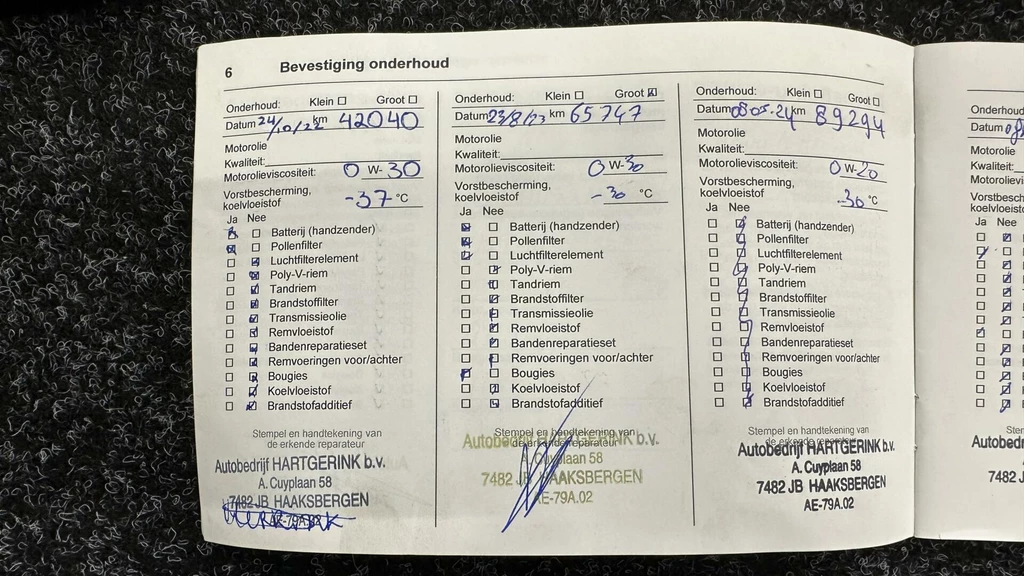 6 Bevestiging onderhoud
Onderhoud: Klein Groot
Datum 24/10/22 km 42040
Motorolie
Kwaliteit:
Motorolieviscositeit: 0 W-30
Vorstbescherming,
koelvloeistof -37 °C
Ja Nee
Batterij (handzender)
Pollenfilter
Luchtfilterelement
Poly-V-riem
Tandriem
Brandstoffilter
Transmissieolie
Remvloeistof
Bandenreparatieset
Remvoeringen voor/achter
Bougies
Koelvloeistof
Brandstofadditief
Stempel en handtekening van
de erkende reparateur
Autobedrijf HARTGERINK b.v.
A. Cuyplaan 58
7482 JB HAAKSBERGEN
AE-79A.02
Onderhoud: Klein Groot
Datum 23/8/23 km 65747
Motorolie
Kwaliteit:
Motorolieviscositeit: 0 W-30
Vorstbescherming,
koelvloeistof -30 °C
Ja Nee
Batterij (handzender)
Pollenfilter
Luchtfilterelement
Poly-V-riem
Tandriem
Brandstoffilter
Transmissieolie
Remvloeistof
Bandenreparatieset
Remvoeringen voor/achter
Bougies
Koelvloeistof
Brandstofadditief
Stempel en handtekening van
de erkende reparateur
Autobedrijf HARTGERINK b.v.
A. Cuyplaan 58
7482 JB HAAKSBERGEN
AE-79A.02
Onderhoud: Klein Groot
Datum 08.05.24 km 89294
Motorolie
Kwaliteit:
Motorolieviscositeit: 0 W-20
Vorstbescherming,
koelvloeistof -30 °C
Ja Nee
Batterij (handzender)
Pollenfilter
Luchtfilterelement
Poly-V-riem
Tandriem
Brandstoffilter
Transmissieolie
Remvloeistof
Bandenreparatieset
Remvoeringen voor/achter
Bougies
Koelvloeistof
Brandstofadditief
Stempel en handtekening van
de erkende reparateur
Autobedrijf HARTGERINK b.v.
A. Cuyplaan 58
7482 JB HAAKSBERGEN
AE-79A.02
Onderhoud
Datum
Motorolie
Kwaliteit:
Motorolievi
Vorstbesch
koelvloeist
Ja Nee
Stempel
Autobedr
7482